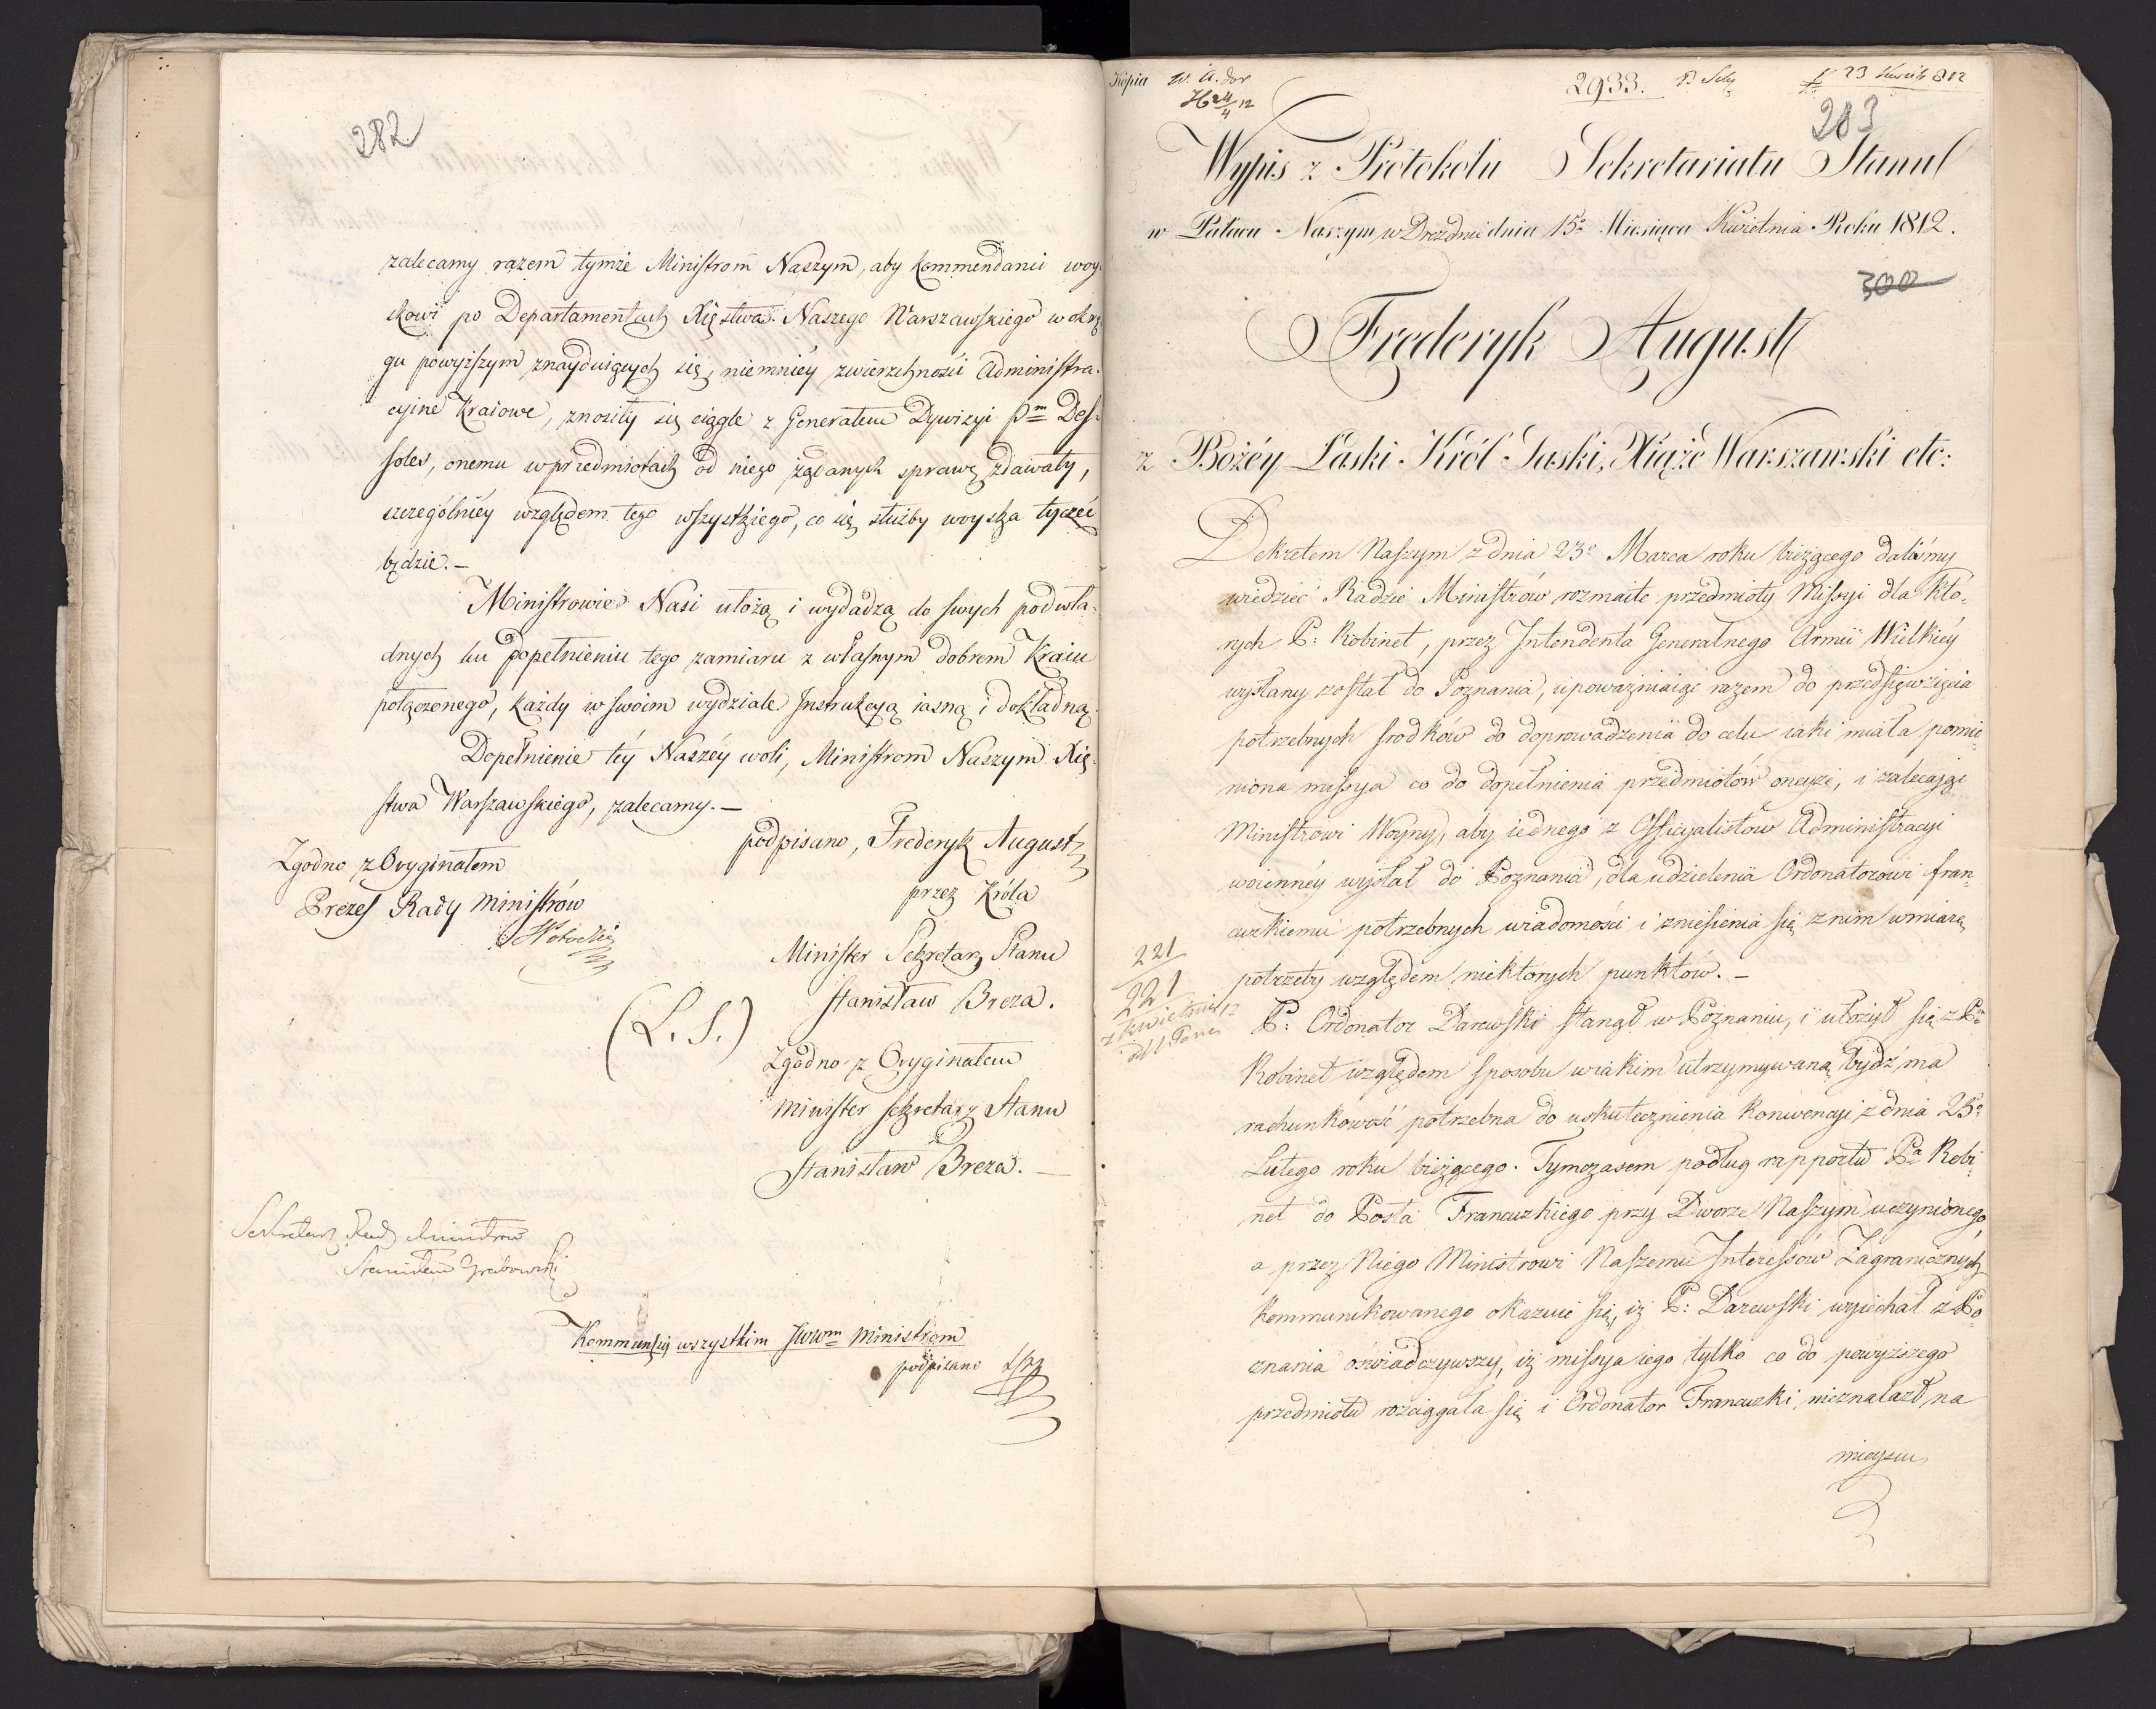 282
zalecamy razem tymże Ministrom Naszym, aby kommendanci woy-
skowi po Departamentach Xięstwa Naszego Warszawskiego w okrę-
gu powyższym znayduiących się, niemniéy zwierzchności Administra-
cyine kraiowe, znosiły się ciągle z Generałem Dywizyi Pm Des-
soles, onemu w przedmiotach od niego żądanych sprawę zdawały,
szczególniéy względem tego wszystkiego, co się służby woyska tyczéć
będzie.—
Ministrowie Nasi ułożą i wydadzą do swych podwła-
dnych ku dopełnieniu tego zamiaru z własnym dobrem Kraiu
połączonego, każdy w swoim wydziale Instrukcyą iasną i dokładną.
Dopełnienie téy Naszéy woli, Ministrom Naszym Xię-
stwa Warszawskiego, zalecamy.—
podpisano, Frederyk August
Zgodno z Oryginałem
przez Króla
Prezes Rady Ministrów
Minister Sekretarz Stanu
Stanisław Breza.
(L.S.)
Zgodno z Oryginałem
Minister Sekretarz Stanu
Stanisław Breza.—
Sekretarz Rady Ministrów
Stanisław Grabowski
wszystkim JWWm Ministrom
podpisano
Kopia
2933.
23 812
283
Wypis z Protokołu Sekretariatu Stanu
w Pałacu Naszym w Dreznie dnia 15o Miesiąca Kwietnia Roku 1812.
300
Frederyk August
z Bożéy Łaski Król Saski, Xiąże Warszawski etc:
Dekretem Naszym z dnia 23o Marca roku bieżącego daliśmy
wiedzieć Radzie Ministrów rozmaite przedmioty Missyi dla któ-
rych P: Robinet, przez Intendenta Generalnego Armii Wielkiéy
wysłany został do Poznania, upoważniaiąc razem do przedsięwzięcia
potrzebnych srodków do doprowadzenia do celu iaki miała pomie-
niona missya co do dopełnienia przedmiotów oneyże, i zalecaiąc
Ministrowi Woyny, aby iednego z Officyalistów Administracyi
woienney wysłał do Poznania, dla udzielenia Ordonatorowi fran-
cuzkiemu potrzebnych wiadomości i zniesienia się z nim w miarę
potrzeby względem niektorych punktów.—
221
221
P: Ordonator Darewski stanął w Poznaniu, i ułożył się z Pm
Robinet względem sposobu w iakim utrzymywaną bydź ma
rachunkowość potrzebna do uskutecznienia Konwencyi z dnia 25o
Lutego roku bieżącego. Tymczasem podług rapportu Pa Robi-
net do Posła Francuzkiego przy Dworze Naszym uczynionego,
a przez Niego Ministrowi Naszemu Interessów Zagranicznych
kommunikowanego okazuie się, iż P: Darewski wyiechał z Po-
znania oświadczywszy, iż missya iego tylko co do powyższego
przedmiotu rozciągała się i Ordonator Francuzki nieznalazł na
mieyscu